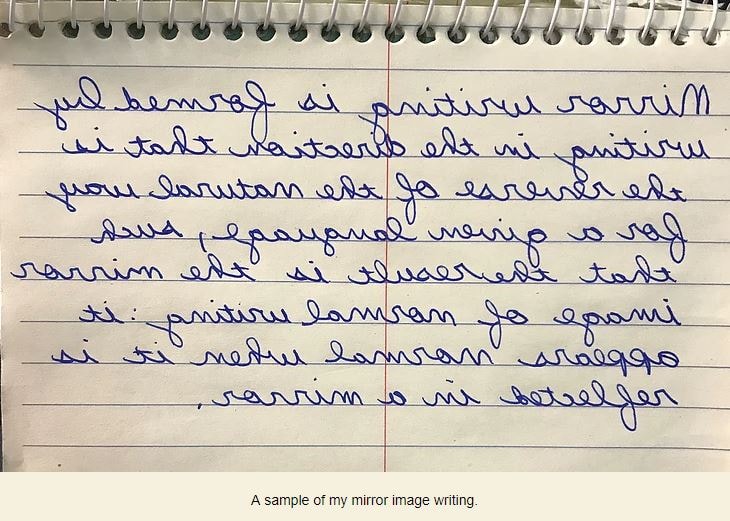 Mirror writing is formed by
writing in the direction that is
the reverse of the natural way
for a given language, such
that the result is the mirror
image of normal writing: it
appears normal when it is
reflected in a mirror.
A sample of my mirror image writing.